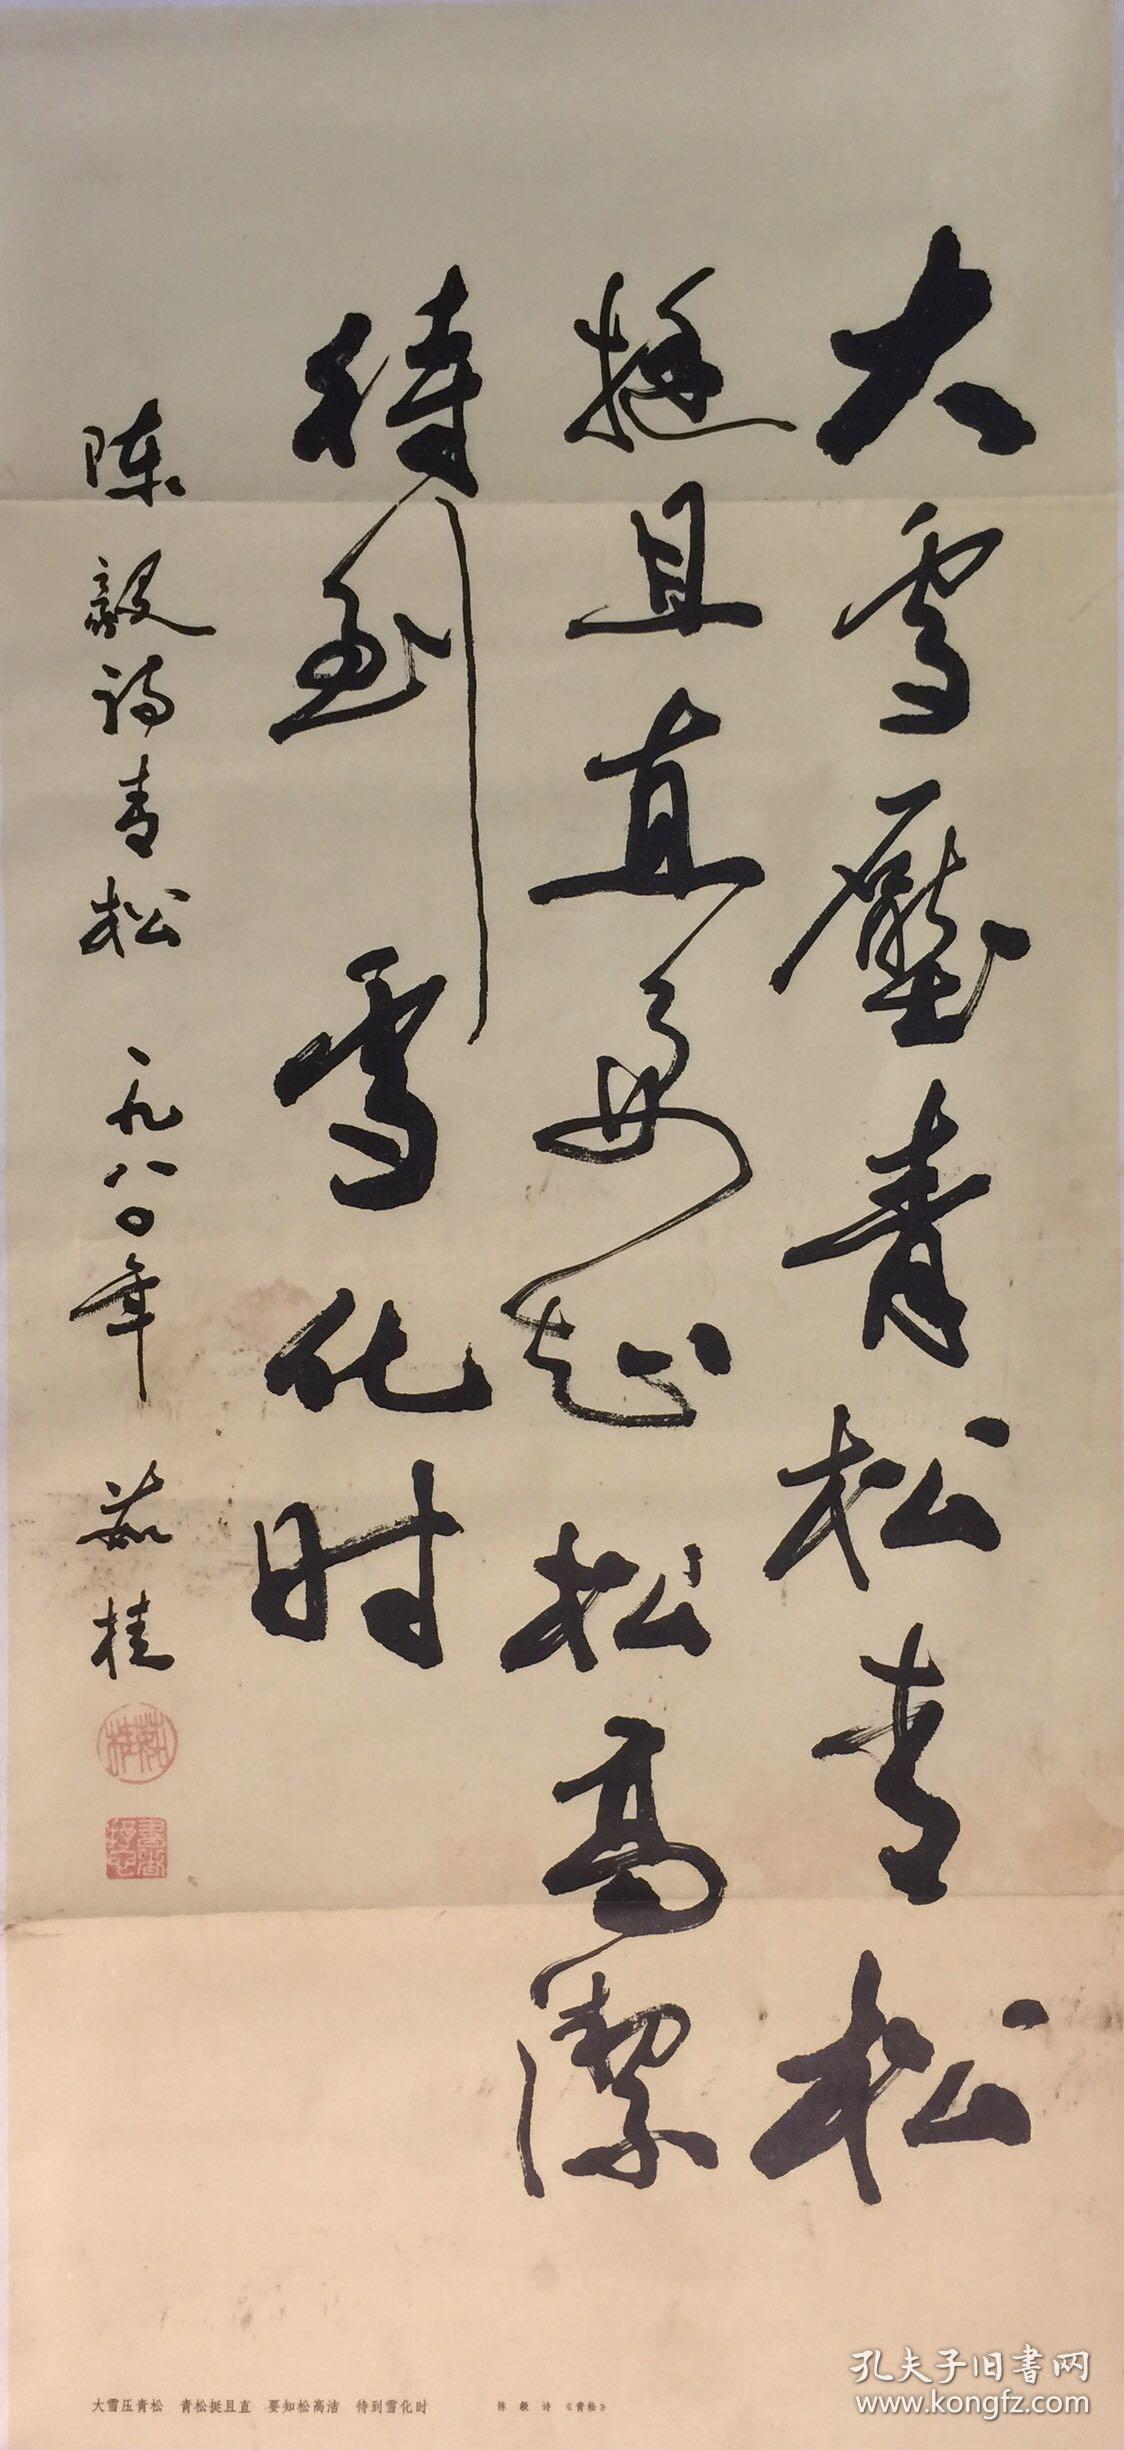 大雪壓青松青松
挺且直要知松高潔
待到雪化时
陈毅诗青松 一九八〇年 茹桂
茹桂
大雪压青松 青松挺且直 要知松高洁 待到雪化时 陈毅诗《青松》
孔夫子旧书网
www.kongfz.com